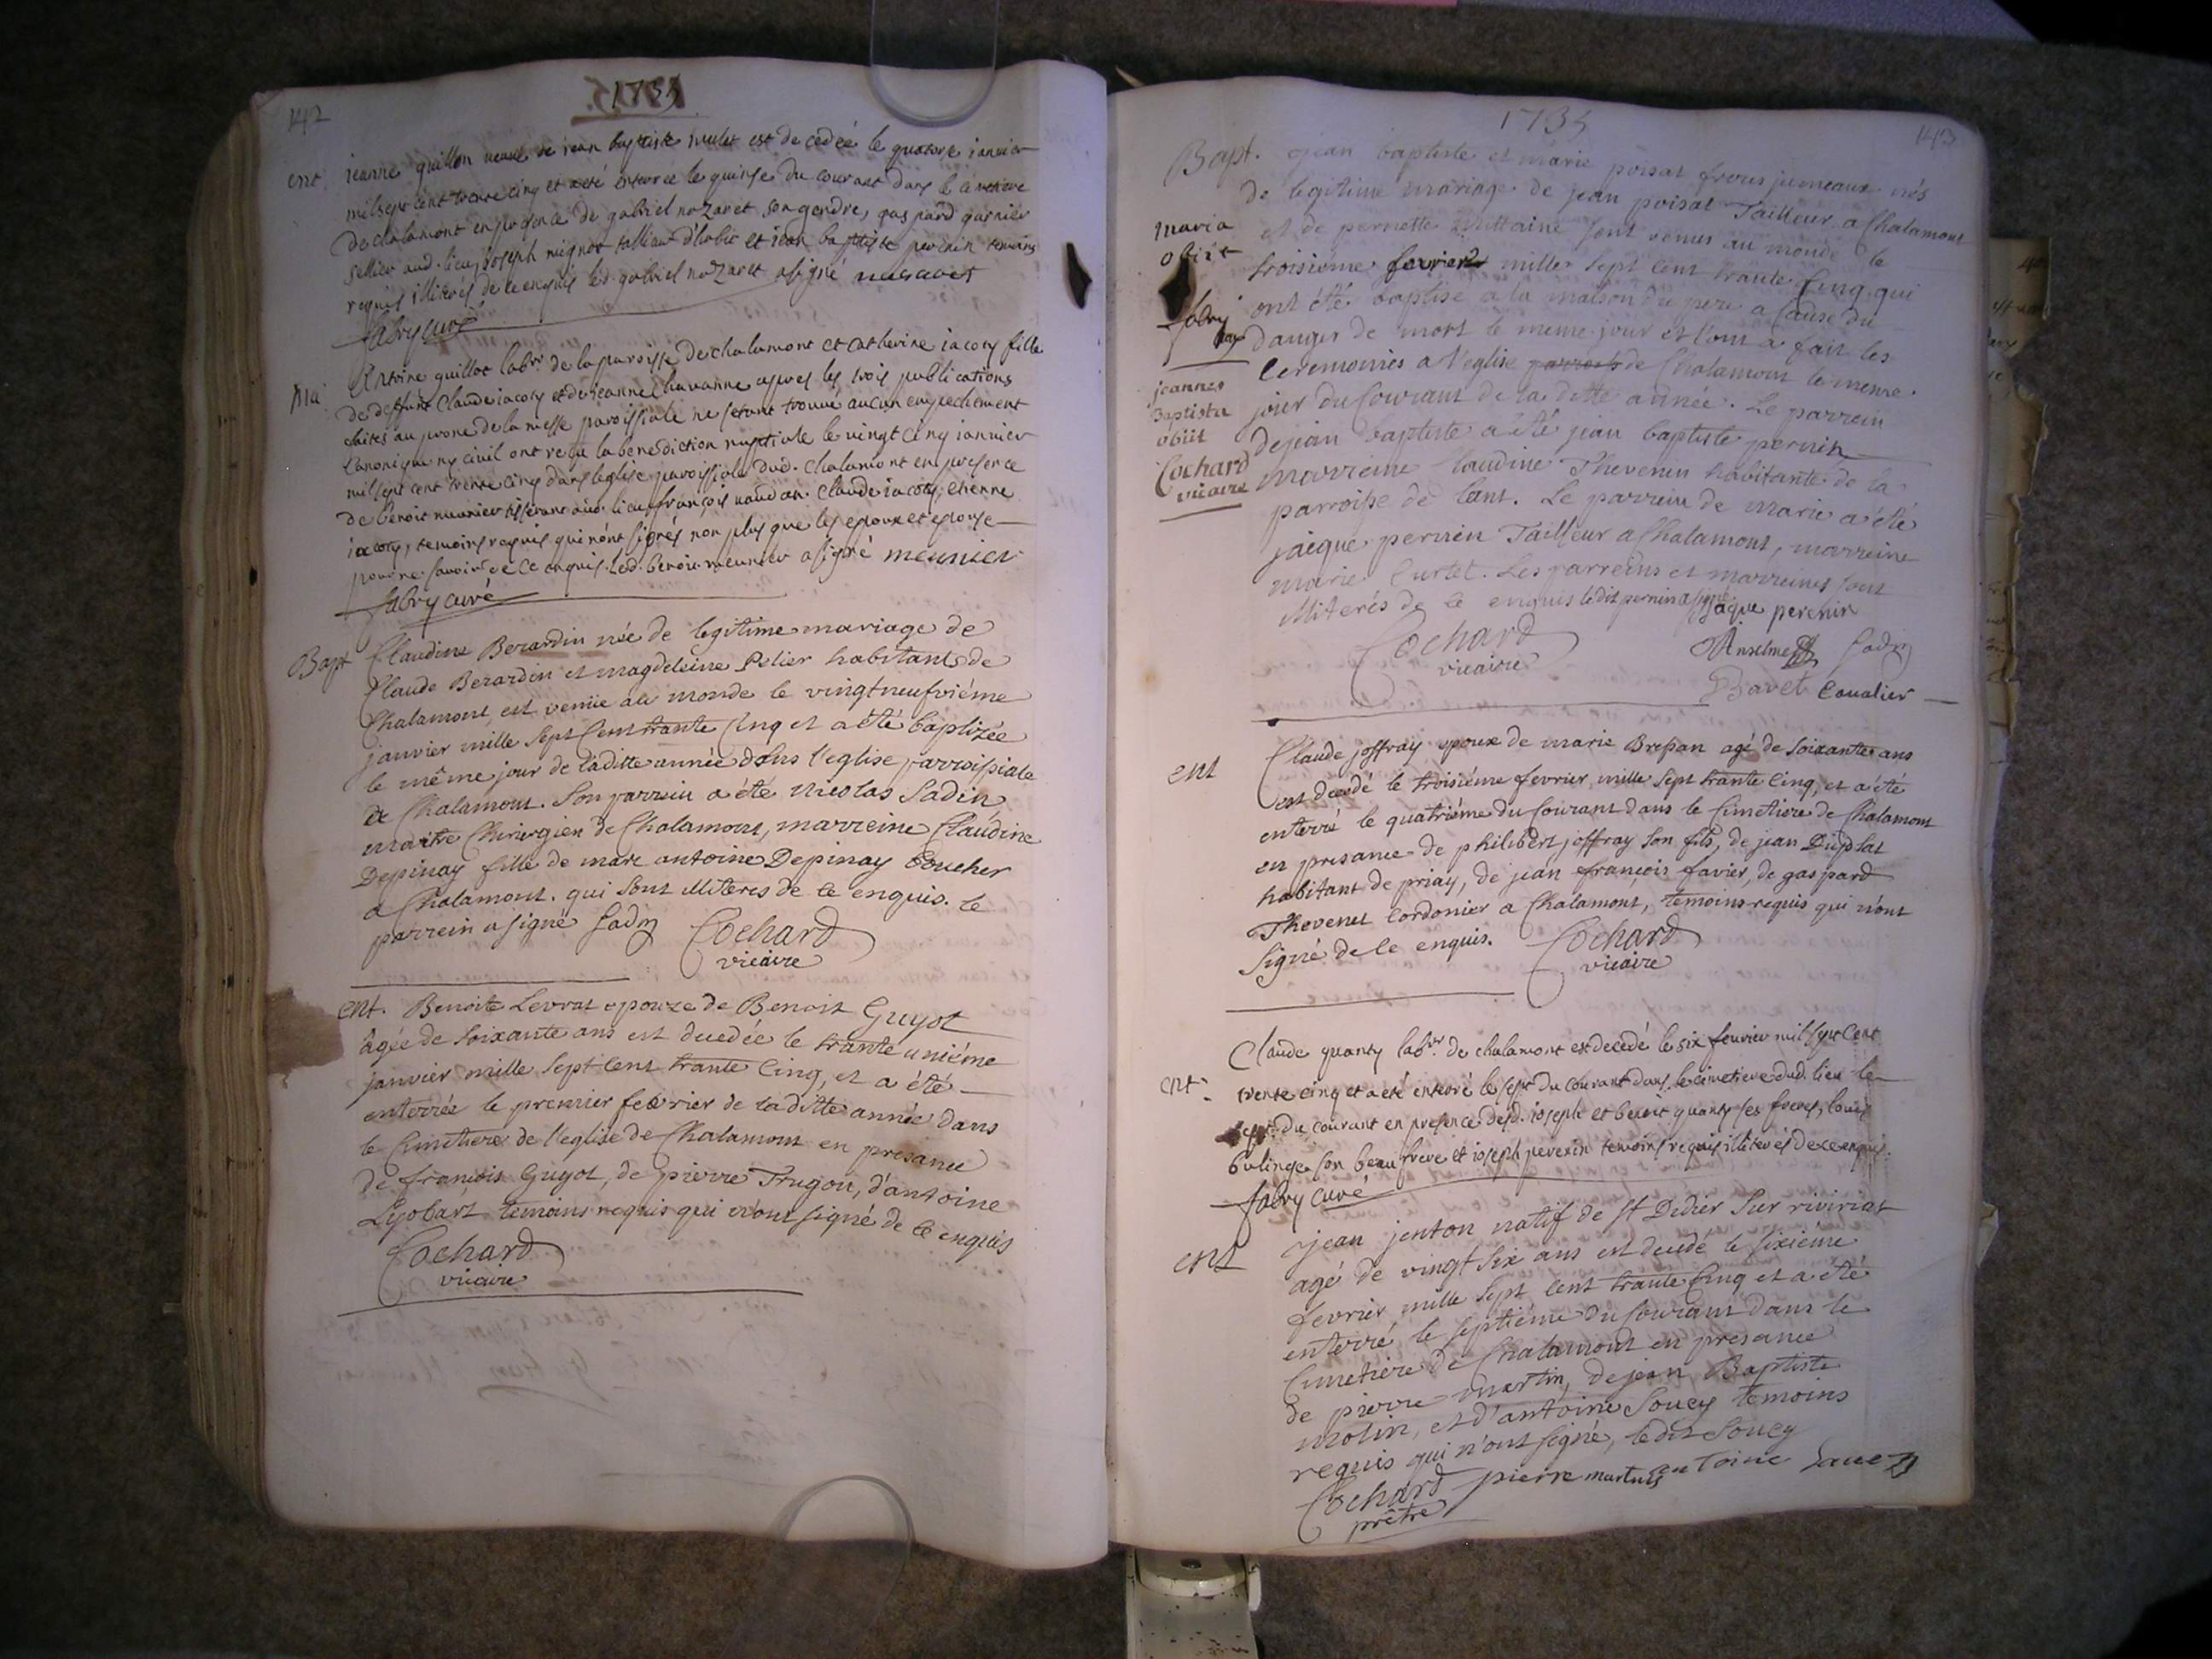 142
1735
ent. jeanne guillon veuve de jean baptiste mulet est decedée le quatorse janvier
mil sept cent trente cinq et a eté enterree le quinse du courant dans le cimetiere
de chalamont en presence de gabriel nazaret son gendre, gaspard garnier
sellier aud. lieu, joseph mignot tallieur d'habit et jean baptiste perenin temoins
requis illiterés de ce enquis led. gabriel nazaret a signé nasaret
fabry curé
Ma. Antoine guillot labr. de la paroisse de chalamont et catherine jacoty fille
de deffunt Claude jacoty et de jeanne Chavanne apres les trois publications
faites au prone de la messe paroissiale ne setant trouvé aucun empechement
Canonique ny civil ont reçu la benediction nuptiale le vingt cinq janvier
mil sept cent trente cinq dans leglise paroissiale dud. chalamont en presence
de benoit munier tisserant aud. lieu françois naudan. Claude jacoty, etienne
jacoty, temoins requis qui n'ont signés non plus que les epoux et epouse
pour ne savoir de ce enquis. led. benoit meunier a signé meunier
fabry curé
Bapt Claudine Berardin née de legitime mariage de
Claude Berardin et magdeleine Pelier habitants de
Chalamont, est venüe au monde le vingtneufviéme
janvier mille sept Cent trante Cinq et a été baptizée
le même jour de laditte année dans l'eglise parroissiale
de Chalamont. Son parrein a été Nicolas Sadin
maitre Chirurgien de Chalamont, marreine Claudine
Depinay fille de marc antoine Depinay Boucher
a Chalamont. qui sont illiterés de ce enquis. le
parrein a signé Sadin Cochard
vicaire
ent. Benoite Levrat epouze de Benoit Guyot
âgée de soixante ans est decedée le trante uniéme
janvier mille sept cent trante cinq, et a été
enterrée le premier fevrier de laditte année dans
le Cimetiere de l'eglise de Chalamont en presance
de françois Guyot, de pierre Trugon, d'antoine
Lyobart temoins requis qui n'ont signé de ce enquis
Cochard
vicaire
1735
143
Bapt. jean baptiste et marie poisat freres jumeaux nés
de legitime mariage de jean poisat Tailleur a Chalamont
et de pernette sont venus au monde le
troisieme fevrier mille sept cent trante Cinq qui
ont été baptisé a la maison du pere a cause du
danger de mort le meme jour et l'on a fait les
Ceremonies a l'eglise de Chalamont le meme
jour du Courant de la ditte année. Le parrein
de jean baptiste a été jean baptiste pernin
marreine Claudine Thevenin habitante de la
parroisse de Cent. Le parrein de marie a été
jacque pernin Tailleur a Chalamont, marreine
marie Curtet. Les parreins et marreines sont
illiterés de ce enquis ledit pernin a signé jaque perenin
maria
obiit
fabry
jeannes
Baptista
obiit
Cochard
vicaire
Cochard
vicaire
Anselme Sadin
Bavet Coualier
ent Claude joffray epoux de marie Bressan agé de soixante ans
est decedé le troisiéme fevrier mille sept trante cinq, et a été
enterré le quatriéme du Courant dans le Cimetiere de Chalamont
en presance de philibert joffray son fils, de jean Duplat
habitant de priay, de jean françois favier, de gaspard
Thevenet Cordonier a Chalamont, temoins requis qui n'ont
signé de ce enquis. Cochard
vicaire
ent. Claude quanty labr. de chalamont est decedé le six fevrier mil sept Cent
trente cinq et a eté enterré le sept du courant dans le cimetiere dud. lieu le
sept du courant en presence desd. joseph et benoit quanty ses freres, louis
bulinge son beau frere et joseph perenin temoins requis illiterés de ce enquis.
fabry curé
ent jean jenton natif de St Didier Sur riviriat
agé de vingt six ans est decedé le sixiéme
fevrier mille sept cent trante Cinq et a été
enterré le septiéme du Courant dans le
Cimetiere de Chalamont en presance
de pierre martin, de jean Baptiste
molin, et d'antoine Soucy temoins
requis qui n'ont signé, ledit Soucy
Cochard pierre martin antoine
prêtre